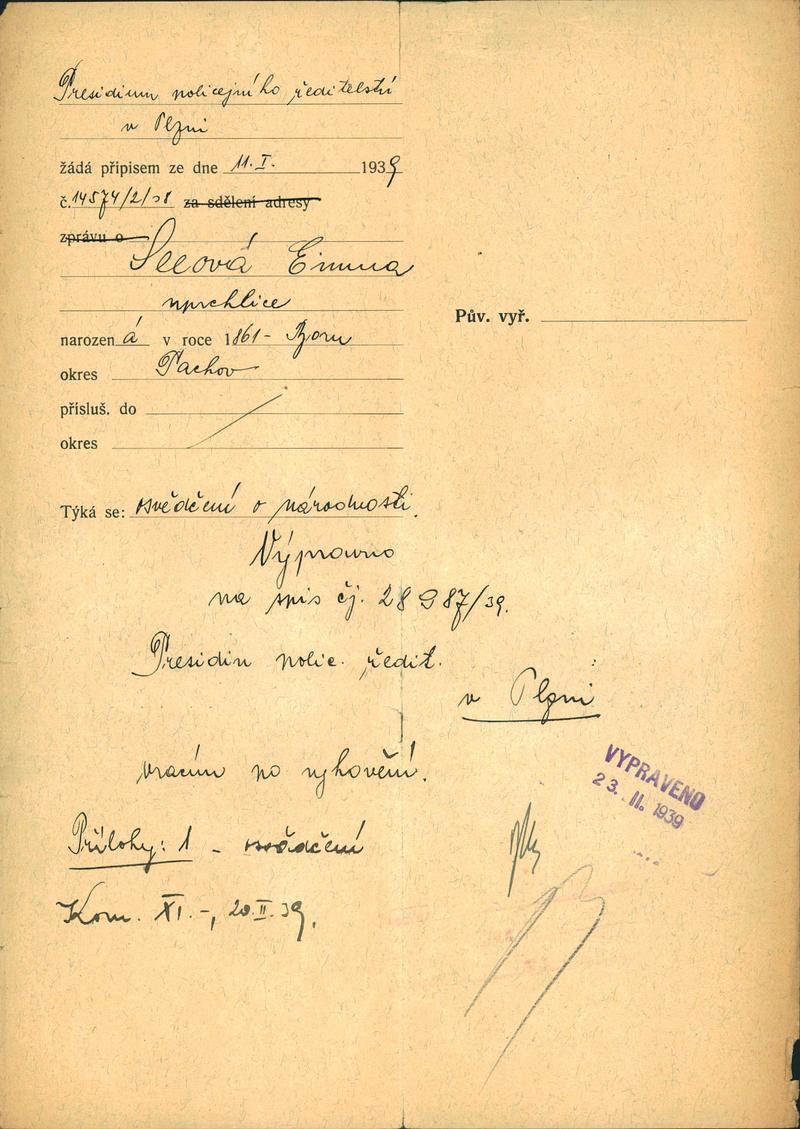 Presidium policejního ředitelství
v Plzni
žádá přípisem ze dne 11.I. 1939
č. 14574/2/38 za sdělení adresy
zprávu o
Seeová Emma
uprchlice
narozen á v roce 1861 - Boru
okres Tachov
přísluš. do
okres
Pův. vyř.
Týká se: osvědčení o národnosti.
Výpravno
na spis čj. 28987/39.
Presidiu polic. ředit.
v Plzni
vracím po vyhovění.
VYPRAVENO
23. II. 1939
Přílohy: 1 - osvědčení
Kom. XI.-, 20.II.39.